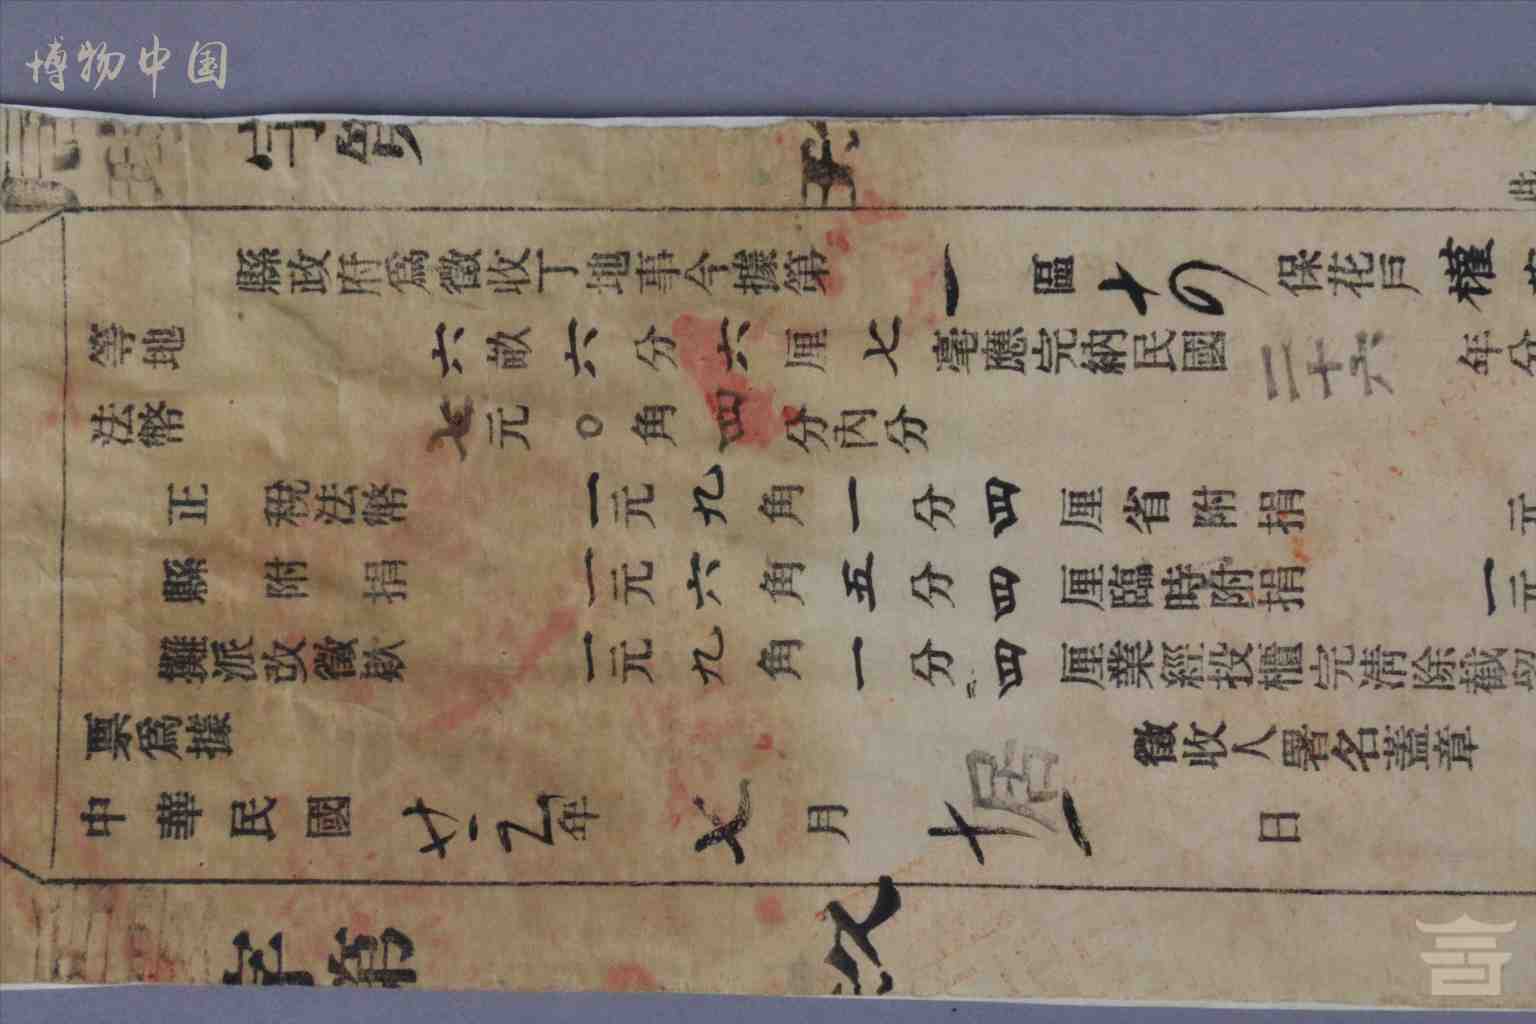 博物中国
字第
縣政府為徵收丁地事今據第一區十的保花戶權
等地六畝六分六厘七毫應完納民國二十六年分
法幣七元〇角四分內分
正稅法幣一元九角一分四厘省附捐元
縣附捐一元六角五分四厘臨時附捐一元
攤派改徵欵一元九角一分四厘業經投櫃完清除截
票為據徵收人署名蓋章
中華民國廿年七月十日
字第